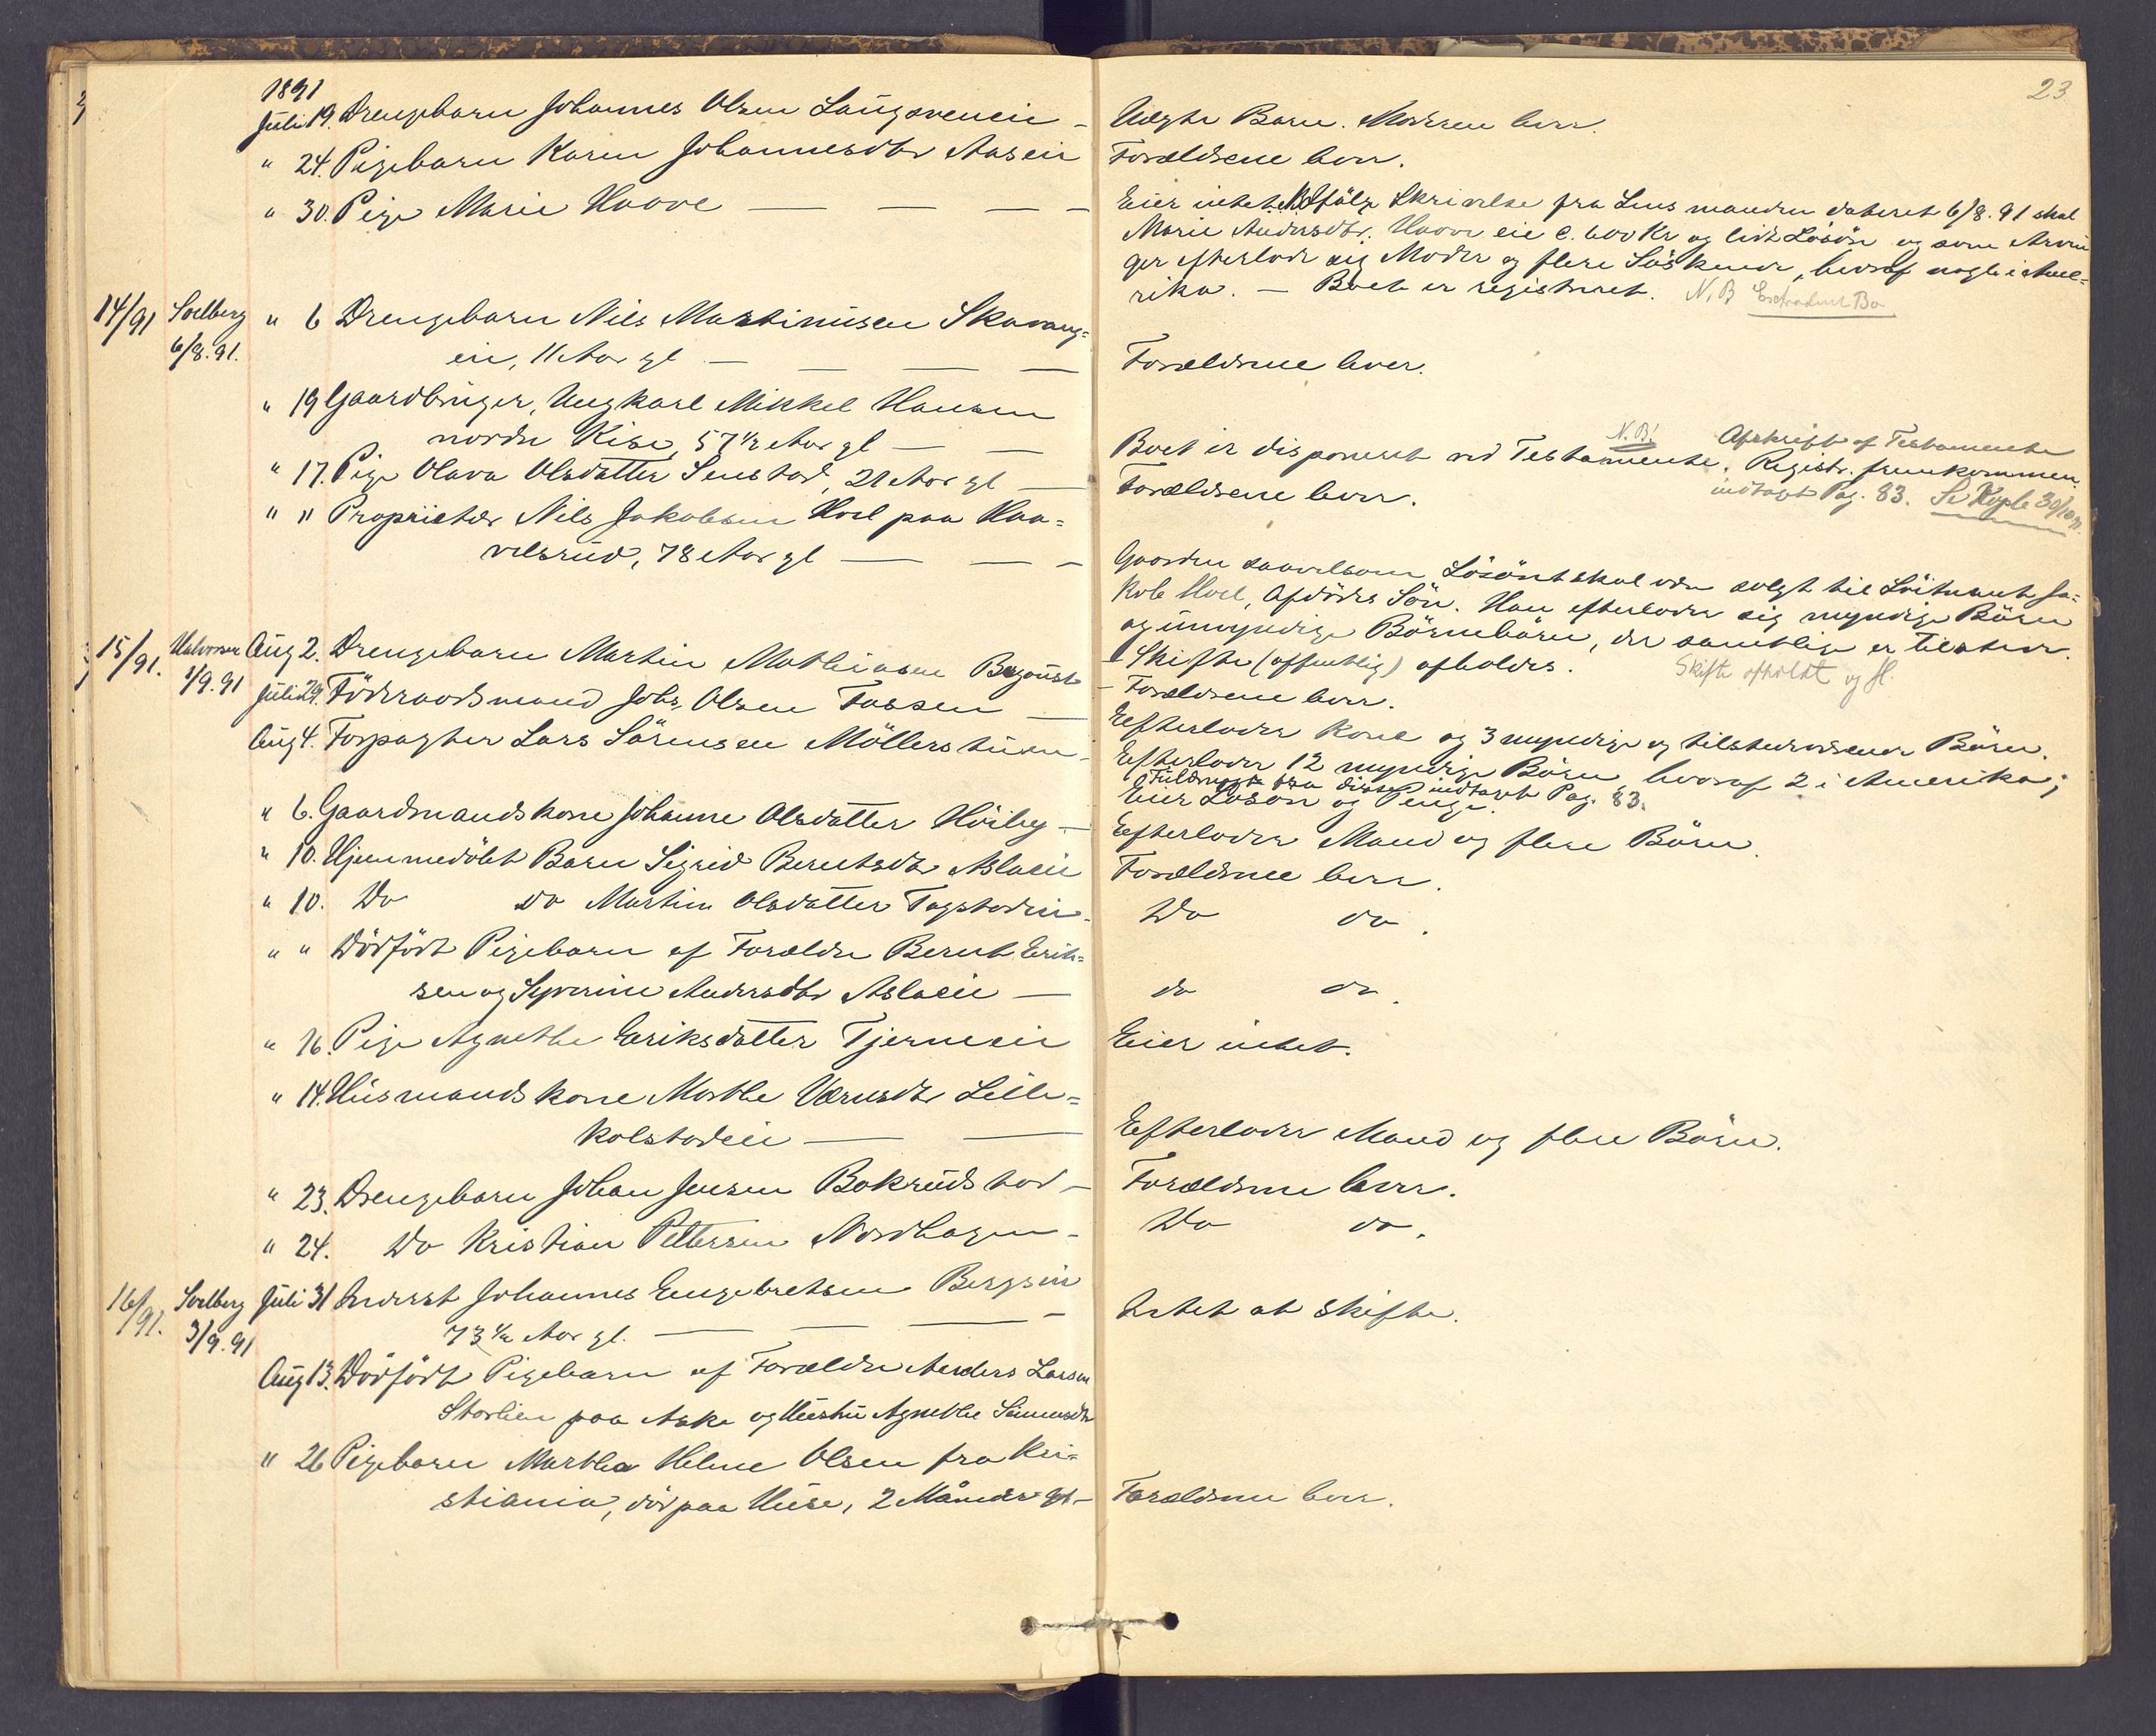 23
1891
Juli 19. Drengebarn Johannes Olsen Laugsveneie –
Uægte Barn. Moderen lever.
" 24. Pigebarn Karen Johannesdtr Aaseie
Forældrene lever.
" 30. Pige Marie Hoove — — — –
Eier intet. Ifølge Skrivelse fra Lensmanden dateret 6/8.91 skal
Marie Andersdtr. Hoove eie c. 600 Kr og lidt Lösöre og som Arvin
ger efterlode sig Moder og flere Söskende, hvoraf nogle i Ame-
rika. – Boet er registreret. N.B Extradert Bo
14/91 Soelberg 6/8.91. " 6 Drengebarn Nils Martinusen Skavang=
eie, 11 Aar gl — — — —
Forældrene lever.
" 19 Gaardbruger, Ungkarl Mikkel Hansen
nordre Kise, 57 1/2 Aar gl — —
N.B! Afskrift af Testamente
Boet er disponeret ved Testamente. Registr. fremkommen.
indtaget Pag. 83. Se Kopb 30/10 91.
" 17. Pige Olava Olsdatter Senstad, 21 Aar gl —
Forældrene lever.
" " Proprietær Nils Jakobsen Hoel paa Haa=
velsrud, 78 Aar gl — — –
Gaarden saavelsom Lösöret skal være solgt til Löitnant Ja=
kob Hoel, Afdödes Sön. Han efterlader sig myndige Börn
og umyndige Börnebörn, der samtlige er tilstede.
Skifte (offentlig) afholdes. Skifte afholdt og sl.
15/91. Halvorsen 1/9.91 Aug 2. Drengebarn Martin Mathiasen Bergquist
Forældrene lever.
Juli 29. Föderaadsmand Johs. Olsen Fossen —
Efterlader Kone og 3 myndige og tilstedeværende Börn.
Aug 4. Forpagter Lars Sörensen Möllerstuen –
Efterlader 12 myndige Börn, hvoraf 2 i Amerika;
Fuldmagt fra disse indtaget Pag. 83.
Eier Lösöre og Penge.
" 6. Gaardmandskone Johanne Olsdatter Höiby –
Efterlader Mand og flere Börn.
" 10. Hjemmedöbt Barn Sigrid Berntsdtr Aslaeie
Forældrene lever.
" 10. Do Do Martine Olsdatter Fagstadeie –
Do do.
" " Dödfödt Pigebarn af Forældre Bernt Erik=
sen og Syverine Andersdtr Aslaeie —
do do.
" 16. Pige Agnethe Eriksdatter Tjerneeie
Eier intet.
" 14. Husmandskone Marthe Larsdtr Lille=
kolstadeie — —
Efterlader Mand og flere Börn.
" 23. Drengebarn Johan Jensen Bakrudstad –
Forældrene lever.
" 24. Do Kristian Pettersen Nordhagen –
Do do.
16/91. Soelberg 3/9.91 Juli 31 Inderst Johannes Engebretsen Bergseie
73 1/2 Aar gl. — — — –
Intet at skifte.
Aug 13. Dödfödt Pigebarn af Forældre Anders Larsen
Storlien paa Aske og Hustru Agnethe
" 26 Pigebarn Marthea Helene Olsen fra Kri=
stiania, död paa Huse, 2 Måneder gl –
Forældrene lever.